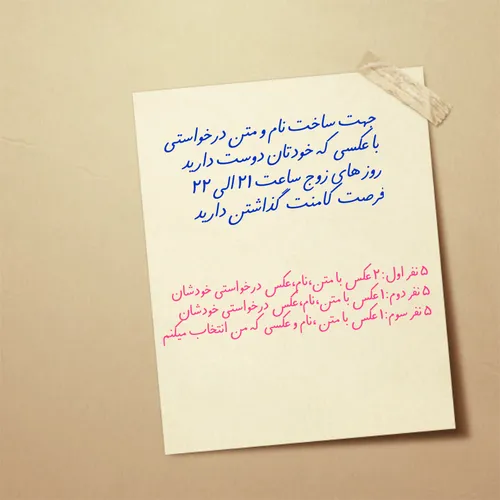 جهت ساخت نام و متن درخواستی
با عکسی که خودتان دوست دارید
روز های زوج ساعت ۲۱ الی ۲۲
فرصت کامنت گذاشتن دارید
۵ نفر اول:۲ عکس با متن،نام،عکس درخواستی خودشان
۵ نفر دوم:۱ عکس با متن،نام،عکس درخواستی خودشان
۵ نفر سوم:۱ عکس با متن ،نام و عکسی که من انتخاب میکنم